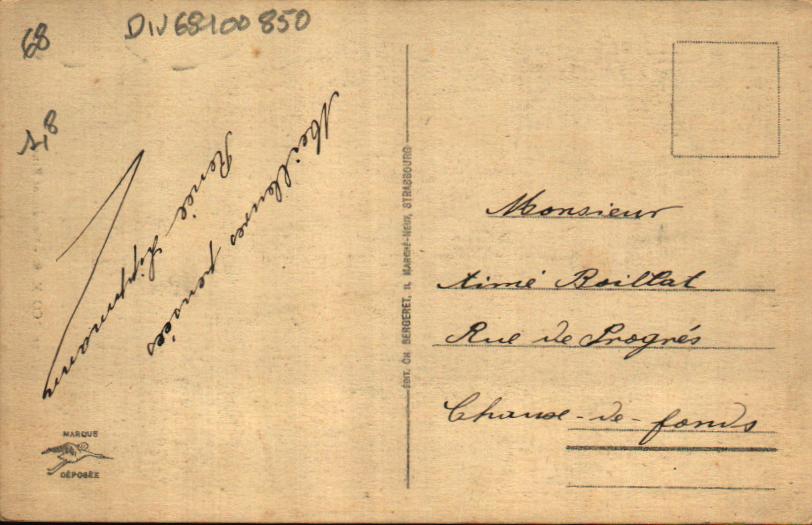 68
DIV68100850
1,8
Meilleures pensées
Renée Lippmann
MARQUE
DÉPOSÉE
ÉDIT. CH. BERGERET, 11, MARCHÉ-NEUF, STRASBOURG
Monsieur
Aimé Boillat
Rue de Progrés
Chaux-de-fonds